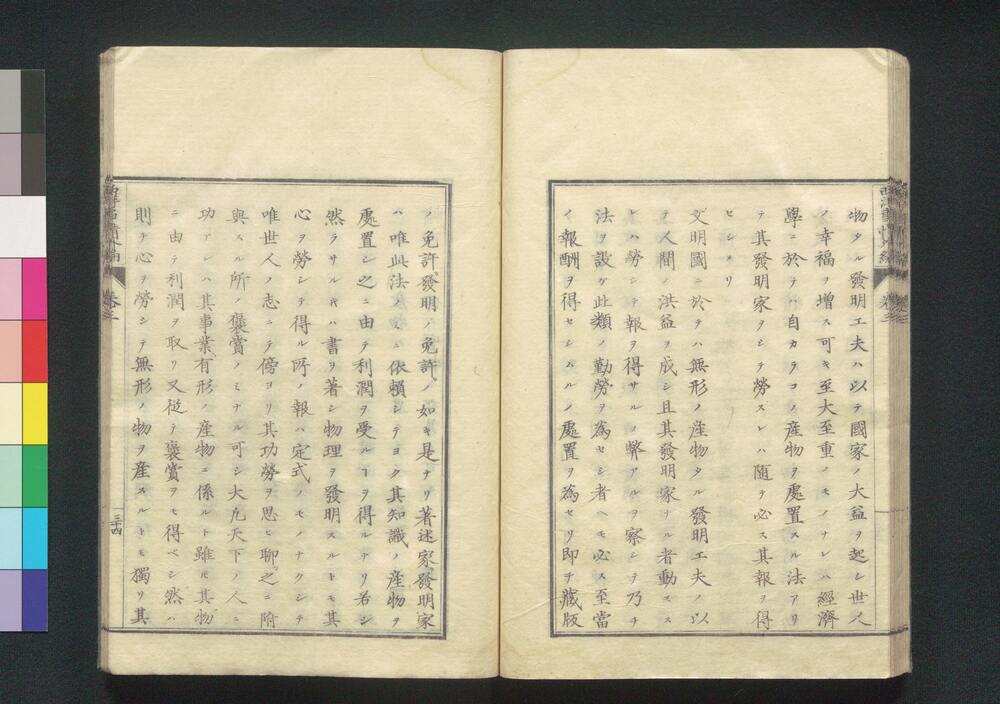 物タル發明工夫ハ以テ國家ノ大益ヲ起シ世人
ノ幸福ヲ増ス可キ至大至重ノモノナレハ經濟
學ニ於テハ自カラコノ産物ヲ處置スル法アリ
テ其發明家ヲシテ勞スレハ隨テ必ス其報ヲ得
セシメリ
文明國ニ於テハ無形ノ産物タル發明工夫ノ以
テ人間ノ洪益ヲ成シ且其發明家ナル者動モス
レハ勞シテ報ヲ得サルノ弊アルヲ察シテ乃チ
法ヲ設ケ此類ノ勤勞ヲ為セシ者ヘモ必ス至當
ノ報酬ヲ得セシムルノ處置ヲ為セリ即チ藏版
ノ免許發明ノ免許ノ如キ是ナリ著述家發明家
ハ唯此法ノミニ依頼シテヨク其知識ノ産物ヲ
處置シ之ニ由テ利潤ヲ受ルヿヲ得ルナリ若シ
然ラサル片ハ書ヲ著シ物理ヲ發明スルトモ其
心ヲ勞シテ得ル所ノ報ハ定式ノモノナクシテ
唯世人ノ志ニテ傍ヨリ其功勞ヲ思ヒ聊之ニ附
與スル所ノ褒賞ノミナル可シ大凢天下ノ人ニ
功アレハ其事業有形ノ産物ニ係ルト雖𪜈其物
ニ由テ利潤ヲ取リ又從テ褒賞ヲモ得ベシ然ハ
則チ心ヲ勞シテ無形ノ物ヲ産スルトモ獨リ其
卷三
三十四